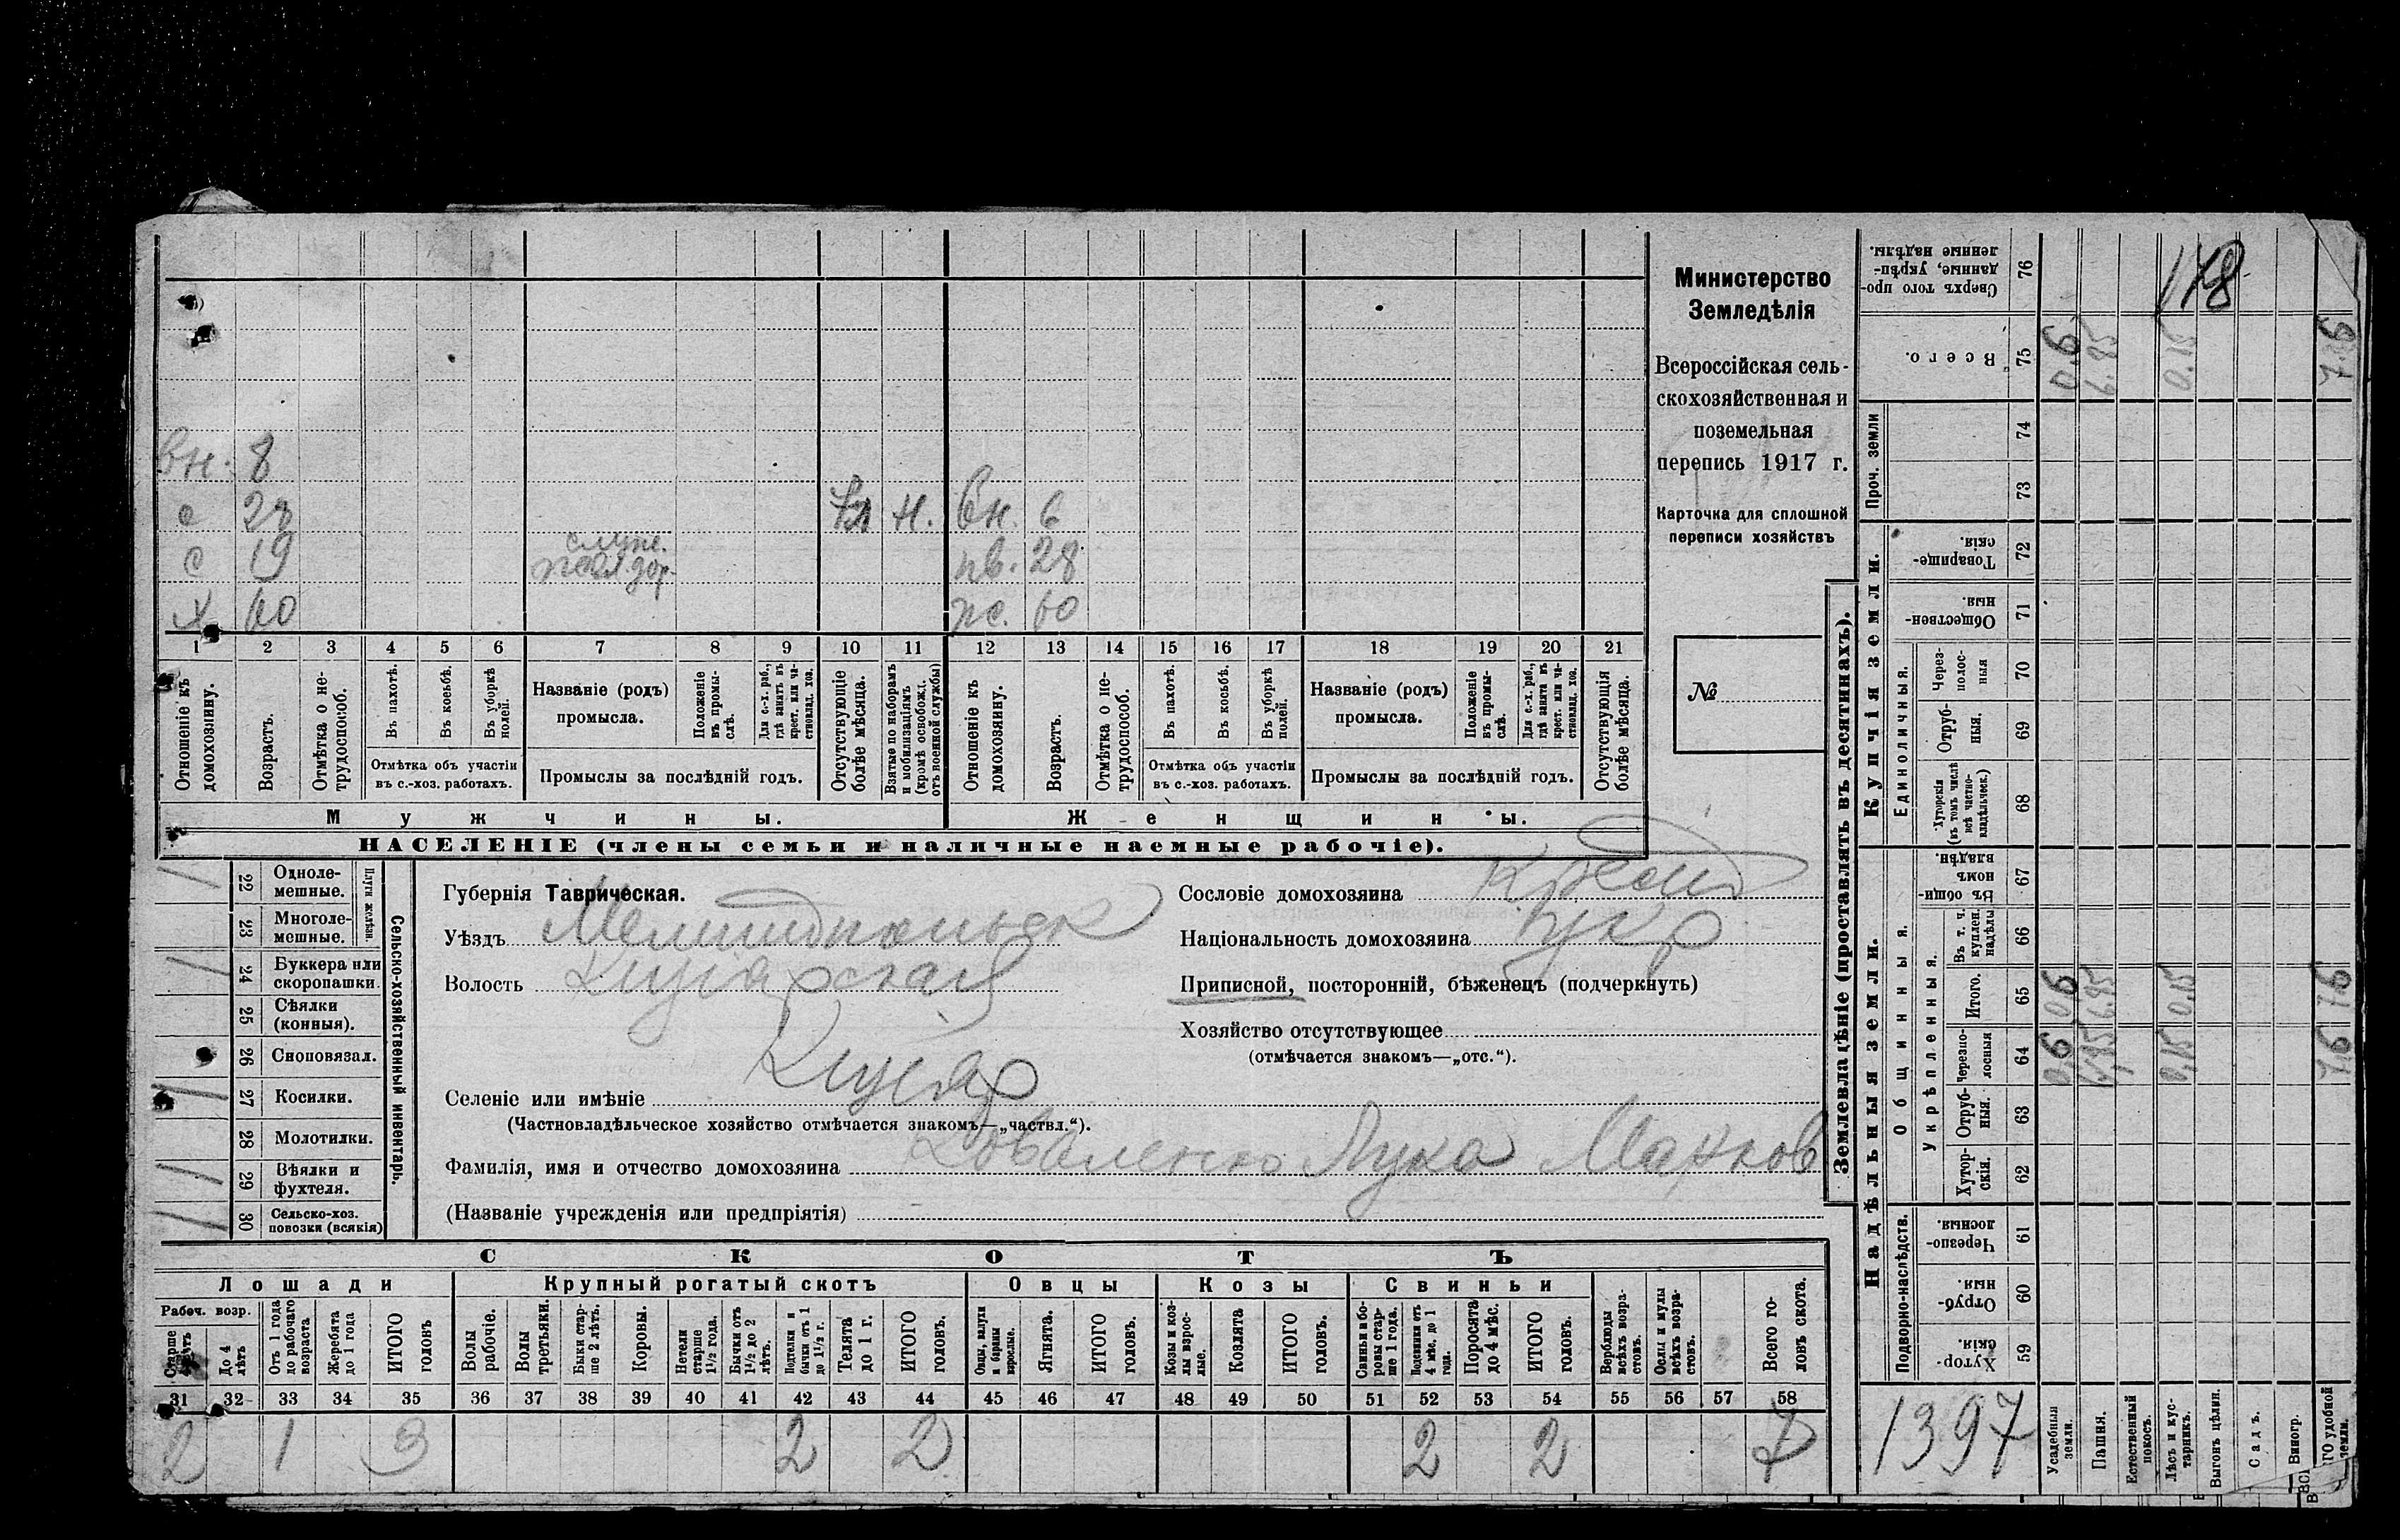 178
Министерство
Земледѣлія
Всероссійская сель-
скохозяйственная и
поземельная
перепись 1917 г.
Карточка для сплошной
переписи хозяйствъ
№
вн. 8
с 28 н. вн. 6
с 19 служ. жел. дор. нв. 28
х 60 ж. 60
1 2 3 4 5 6 7 8 9 10 11 12 13 14 15 16 17 18 19 20 21
Отношеніе къ домохозяину.
Возрастъ.
Отмѣтка о не-трудоспособ.
Въ пахотѣ.
Въ косьбѣ.
Въ уборкѣ полей.
Отмѣтка объ участіи въ с.-хоз. работахъ.
Названіе (родъ) промысла.
Положеніе въ промы-слѣ.
Для с.-х. раб., гдѣ занятъ въ крест. или ча-стновлад. хоз.
Промыслы за послѣдній годъ.
Отсутствующіе болѣе мѣсяца.
Взятые по наборамъ и мобилизаціямъ (кромѣ освобожд. отъ военной службы)
Отношеніе къ домохозяину.
Возрастъ.
Отмѣтка о не-трудоспособ.
Въ пахотѣ.
Въ косьбѣ.
Въ уборкѣ полей.
Отмѣтка объ участіи въ с.-хоз. работахъ.
Названіе (родъ) промысла.
Положеніе въ промы-слѣ.
Для с.-х. раб., гдѣ занята въ крест. или ча-стновлад. хоз.
Промыслы за послѣдній годъ.
Отсутствующія болѣе мѣсяца.
Мужчины. Женщины.
НАСЕЛЕНІЕ (члены семьи и наличные наемные рабочіе).
Сельско-хозяйственный инвентарь.
Плуги желѣзн.
22 Одноле-мешные.
23 Многоле-мешные.
24 Буккера или скоропашки.
25 Сѣялки (конныя).
26 Сноповязал.
27 Косилки.
28 Молотилки.
29 Вѣялки и фухтеля.
30 Сельско-хоз. повозки (всякія)
Губернія Таврическая.
Уѣздъ Мелитопольск
Волость Кизіярская
Селеніе или имѣніе Кизіяр
(Частновладѣльческое хозяйство отмѣчается знакомъ—„частвл.“).
Фамилія, имя и отчество домохозяина Коваленко Лука Марков
(Названіе учрежденія или предпріятія)
Сословіе домохозяина Крест
Національность домохозяина укр
Приписной, посторонній, бѣженецъ (подчеркнуть)
Хозяйство отсутствующее
(отмѣчается знакомъ—„отс.“).
СКОТЪ
Лошади Крупный рогатый скотъ Овцы Козы Свиньи
Рабоч. возр.
До 4 лѣтъ
Отъ 1 года до рабочаго возраста
Жеребята до 1 года
ИТОГО головъ
Волы рабочіе.
Волы третьяки.
Быки стар-ше 2 лѣтъ.
Коровы.
Нетели старше 1½ года.
Бычки отъ 1½ до 2 лѣтъ.
Подтелки и бычки отъ 1 до 1½ г.
Телята до 1 г.
ИТОГО головъ.
Овцы, валухи и бараны взрослые.
Ягнята.
ИТОГО головъ.
Козы и коз-лы взрос-лые.
Козлята
ИТОГО головъ.
Свиньи и бо-ровы стар-ше 1 года.
Подсвинки отъ 4 мѣс. до 1 года.
Поросята до 4 мѣс.
ИТОГО головъ.
Верблюды всѣхъ возра-стовъ.
Ослы и мулы всѣхъ возра-стовъ.
Всего го-ловъ скота.
31 32 33 34 35 36 37 38 39 40 41 42 43 44 45 46 47 48 49 50 51 52 53 54 55 56 57 58
2 1 3 2 2 2 2 7
Землевладѣніе (проставлять въ десятинахъ).
Надѣльныя земли. Купчія земли.
Проч. земли
Подворно-наслѣдств.
Общинныя.
Укрѣпленныя.
Единоличныя.
59 Хутор-скія
60 Отруб-ныя.
61 Черезпо-лосныя
62 Хутор-скія.
63 Отруб-ныя.
64 Черезпо-лосныя
65 Итого.
66 Въ т. ч. куплен. надѣлы
67 Въ общин-номъ владѣн.
68 Хуторскія (въ томъ числѣ всѣ частно-владѣльческ.)
69 Отруб-ныя.
70 Через-полос-ныя
71 Обществен-ныя.
72 Товарище-скія.
73
74
75 Всего.
76 Сверхъ того про-данные, укрѣп-ленные надѣлы.
0,6 0,6 0,6
6,85 6,85 6,85
0,15 0,15 0,15
7,6 7,6 7,6
1397
Усадебныя земли.
Пашня.
Естественный покосъ.
Лѣсъ и кус-тарникъ.
Выгонъ цѣлин.
Садъ.
Виногр.